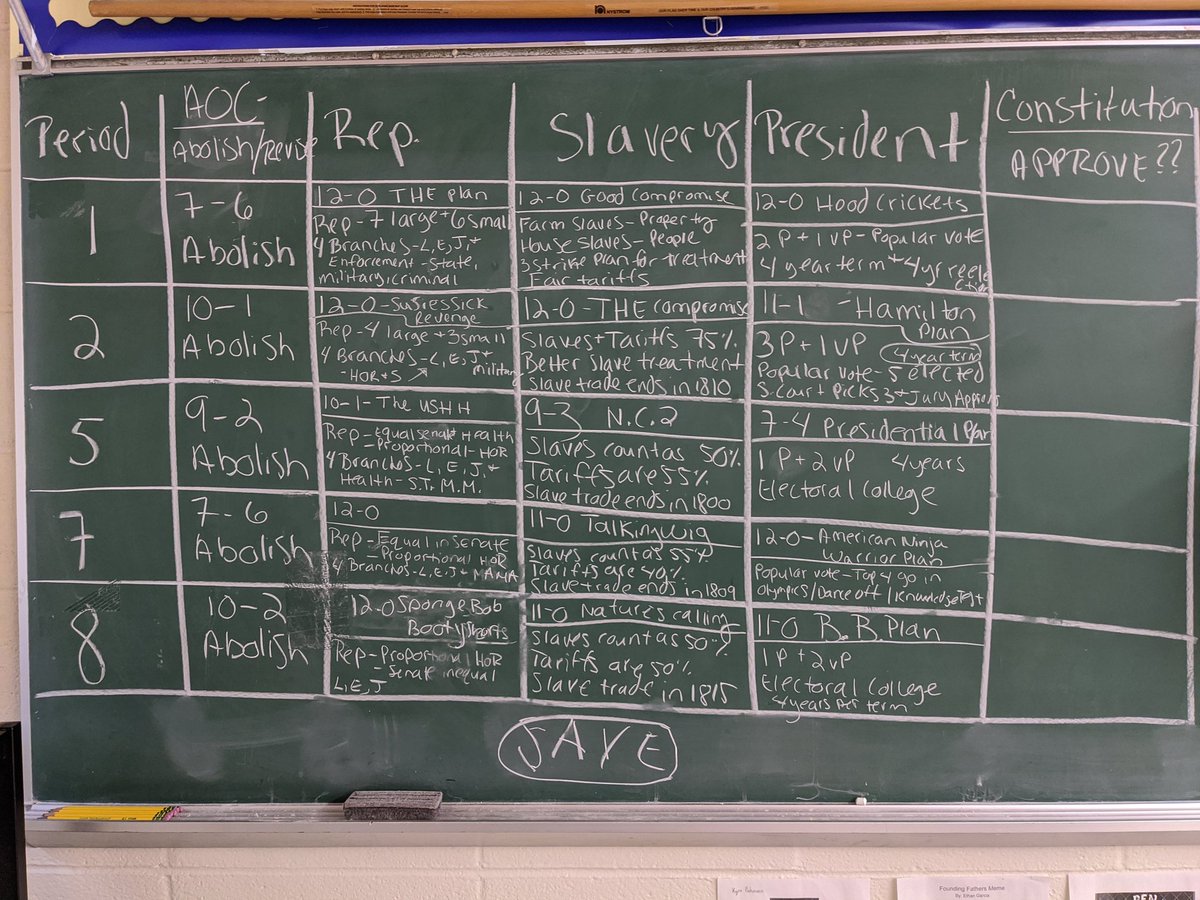 NYSTROM
Period
AOC-
Abolish/Revise
Rep.
Slavery
President
Constitution
APPROVE??
1
7-6
Abolish
12-0 THE plan
Rep-7 large + 6 small
4 Branches-L, E, J, +
Enforcement-state,
military, criminal
12-0 Good compromise
Farm slaves- Property
House slaves- People
3 Strike plan for treatment
Fair tariffs
12-0 Hood crickets
2 P + 1 VP-Popular vote
4 year term + 4 yr reele
ction
2
10-1
Abolish
12-0-
Revenge
Rep-4 large + 3 small
4 Branches-L, E, J +
military
-HOR+S
12-0-THE compromise
Slaves + Tariffs 75%
Better slave treatment
Slave trade ends in 1810
11-1 -Hamilton
Plan
3 P + 1 VP
4 year term
Popular vote- 5 elected
S. Court Picks 3 + Jury Approves
5
9-2
Abolish
10-1- The USHH
Rep-Equal senate Health
-Proportional-HOR
4 Branches-L, E, J, +
Health- S.T. M.M.
9-3 N.C.2
Slaves count as 50%
Tariffs are 55%
Slave trade ends in 1800
7-4 Presidential Plan
1 P + 2 VP 4 years
Electoral College
7
7-6
Abolish
12-0
Rep-Equal in Senate
-Proportional HOR
4 Branches-L, E, J + NANA
11-0 Talkinwig
Slaves count as 55%
Tariffs are 40%
Slave trade ends in 1809
12-0- American Ninja
Warrior Plan
Popular vote-Top 4 go in
Olympics/Dance off/Knowledge Test
8
10-2
Abolish
12-0 SpongeBob
Bootyshorts
Rep-Proportional HOR
-Senate inequal
L, E, J
11-0 Nature's calling
Slaves count as 50%
Tariffs are 50%
Slave trade in 1815
11-0 B.B. Plan
1 P + 2 VP
Electoral College
4 years per term
SAVE
Founding Fathers Meme